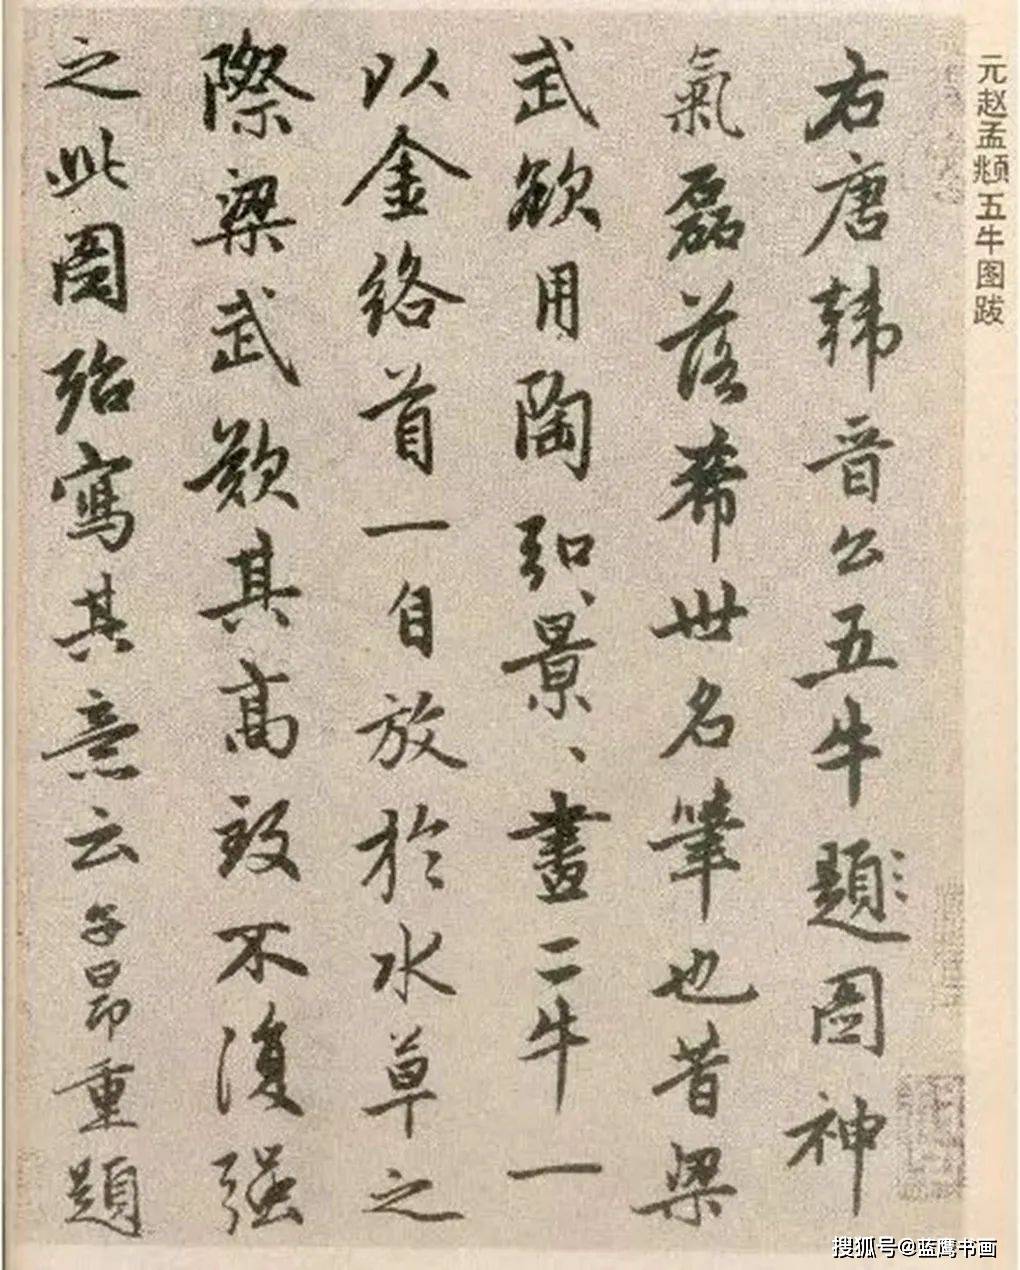 元赵孟頫五牛图跋
右唐韓晋公五牛題圖神
氣磊落希世名筆也昔梁
武欲用陶弘、景、畫二牛一
以金絡首一自放於水草之
際梁武歎其高致不復强
之此圖殆寫其意云子昂重題
搜狐号@蓝鹰书画